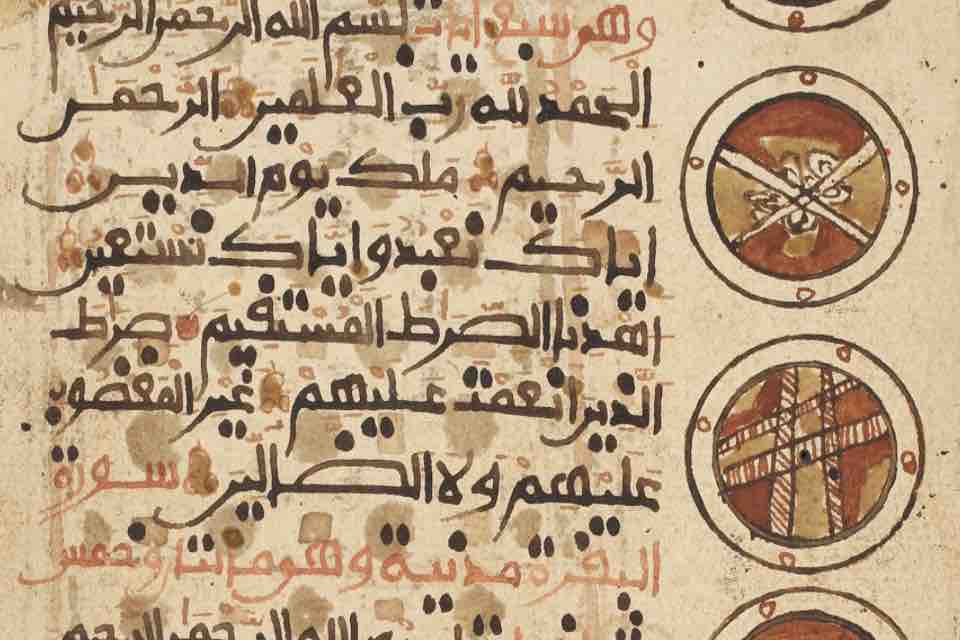 وهو سبع ايات بسم الله الرحمن الرحيم
الحمد لله رب العلمين الرحمن
الرحيم ملك يوم الدين
اياك نعبد واياك نستعين
اهدنا الصرط المستقيم صرط
الذين انعمت عليهم غير المغضوب
عليهم ولا الضالين سورة
البقرة مدنية وهو وخمس
الله الرحمن الرحيم